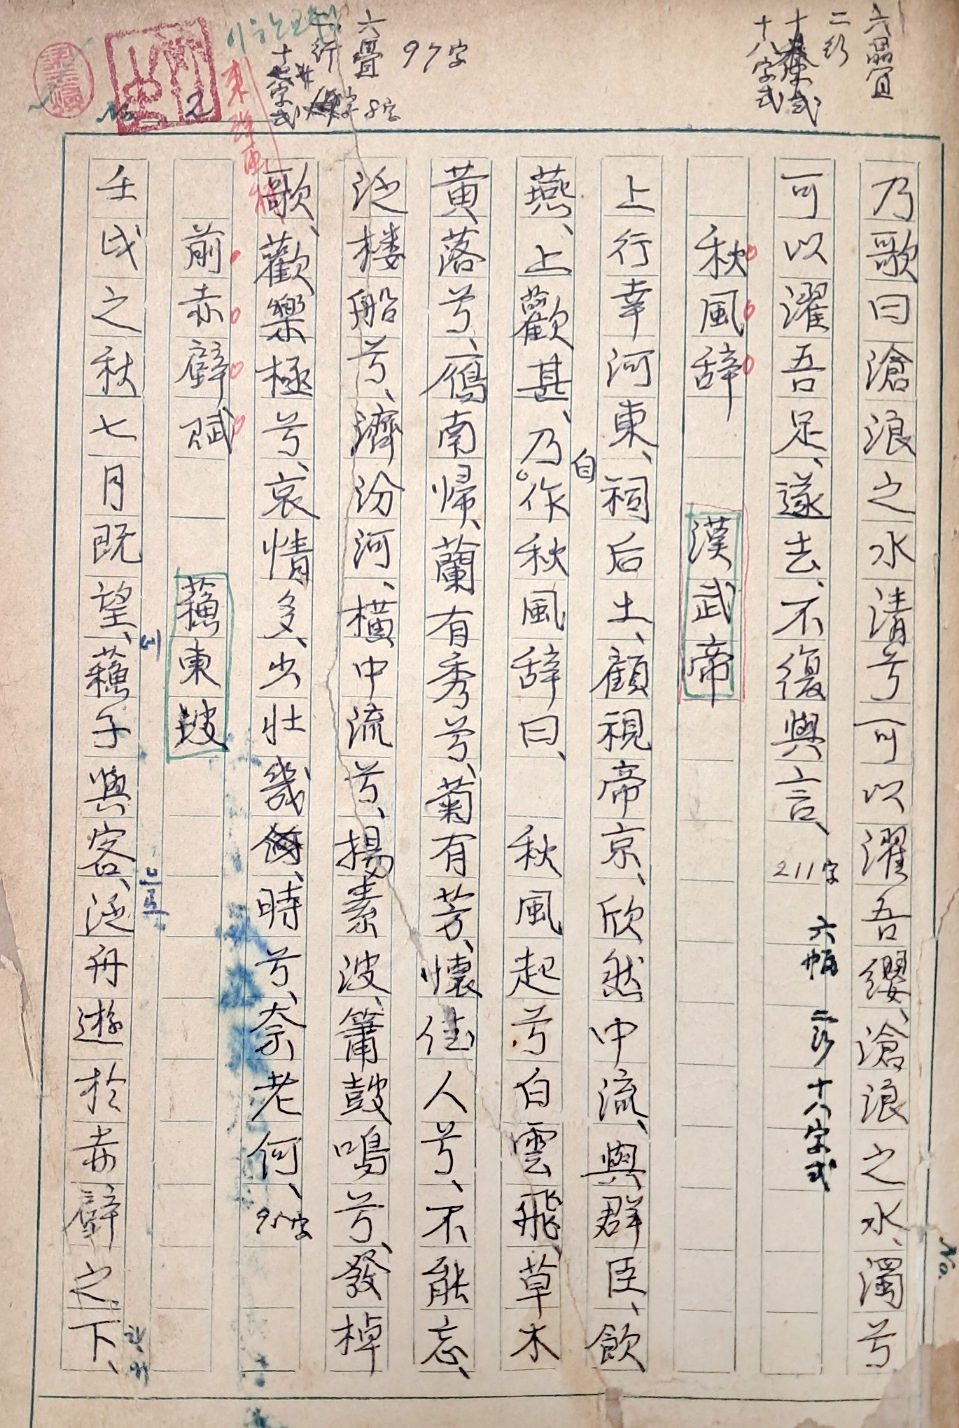 乃歌曰滄浪之水清兮可以濯吾纓、滄浪之水、濁兮
可以濯吾足、遂去、不復與言、
211字
六幅 二行 十八字式
秋風辞 漢武帝
上行幸河東、祠后土、顧視帝京、欣然中流、與群臣、飲
燕、上歡甚、乃作秋風辞曰、 秋風起兮白雲飛、草木
自
黄落兮、鴈南帰、蘭有秀兮、菊有芳、懐佳人兮、不能忘、
泛楼船兮、濟汾河、横中流兮、揚素波、簫鼓鳴兮、發棹
歌、歡樂極兮、哀情、多、少壮幾時兮、奈老何、
95字
前赤壁賦 蘓東坡
壬戌之秋七月既望、蘓子與客、泛舟遊於赤壁之下、
六畳
二行
十八字式
六畳
97字
二行